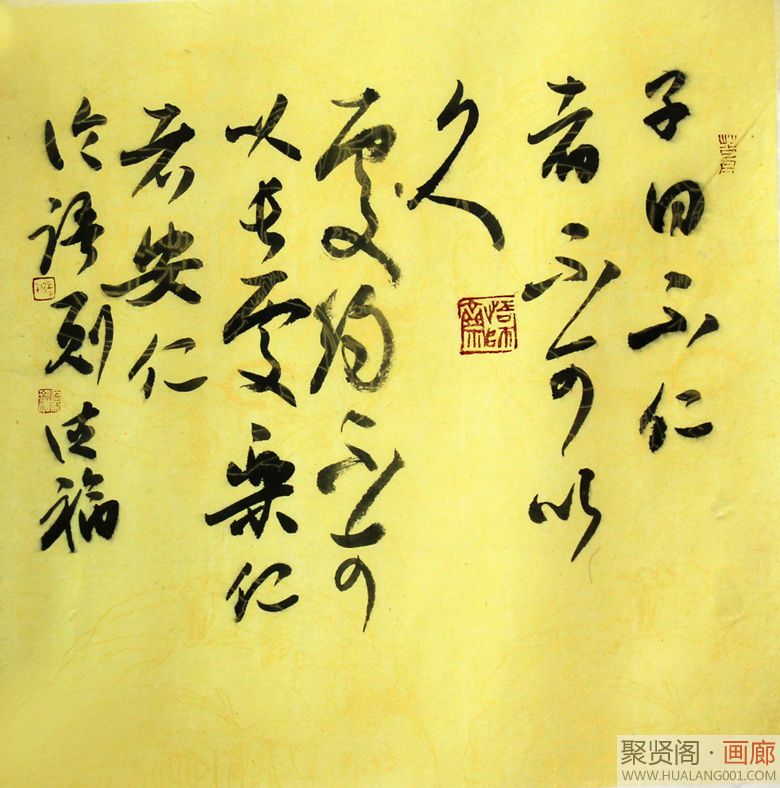 子曰不仁
者不可以
久
處約不可
以長處樂仁
者安仁
論語劉德福
聚贤阁·画廊
WWW.HUALANG001.COM